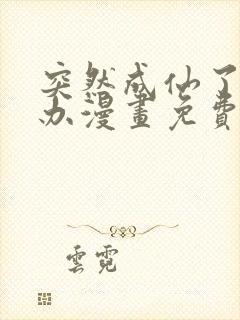 突然成仙了
办漫畫免費
雲霓